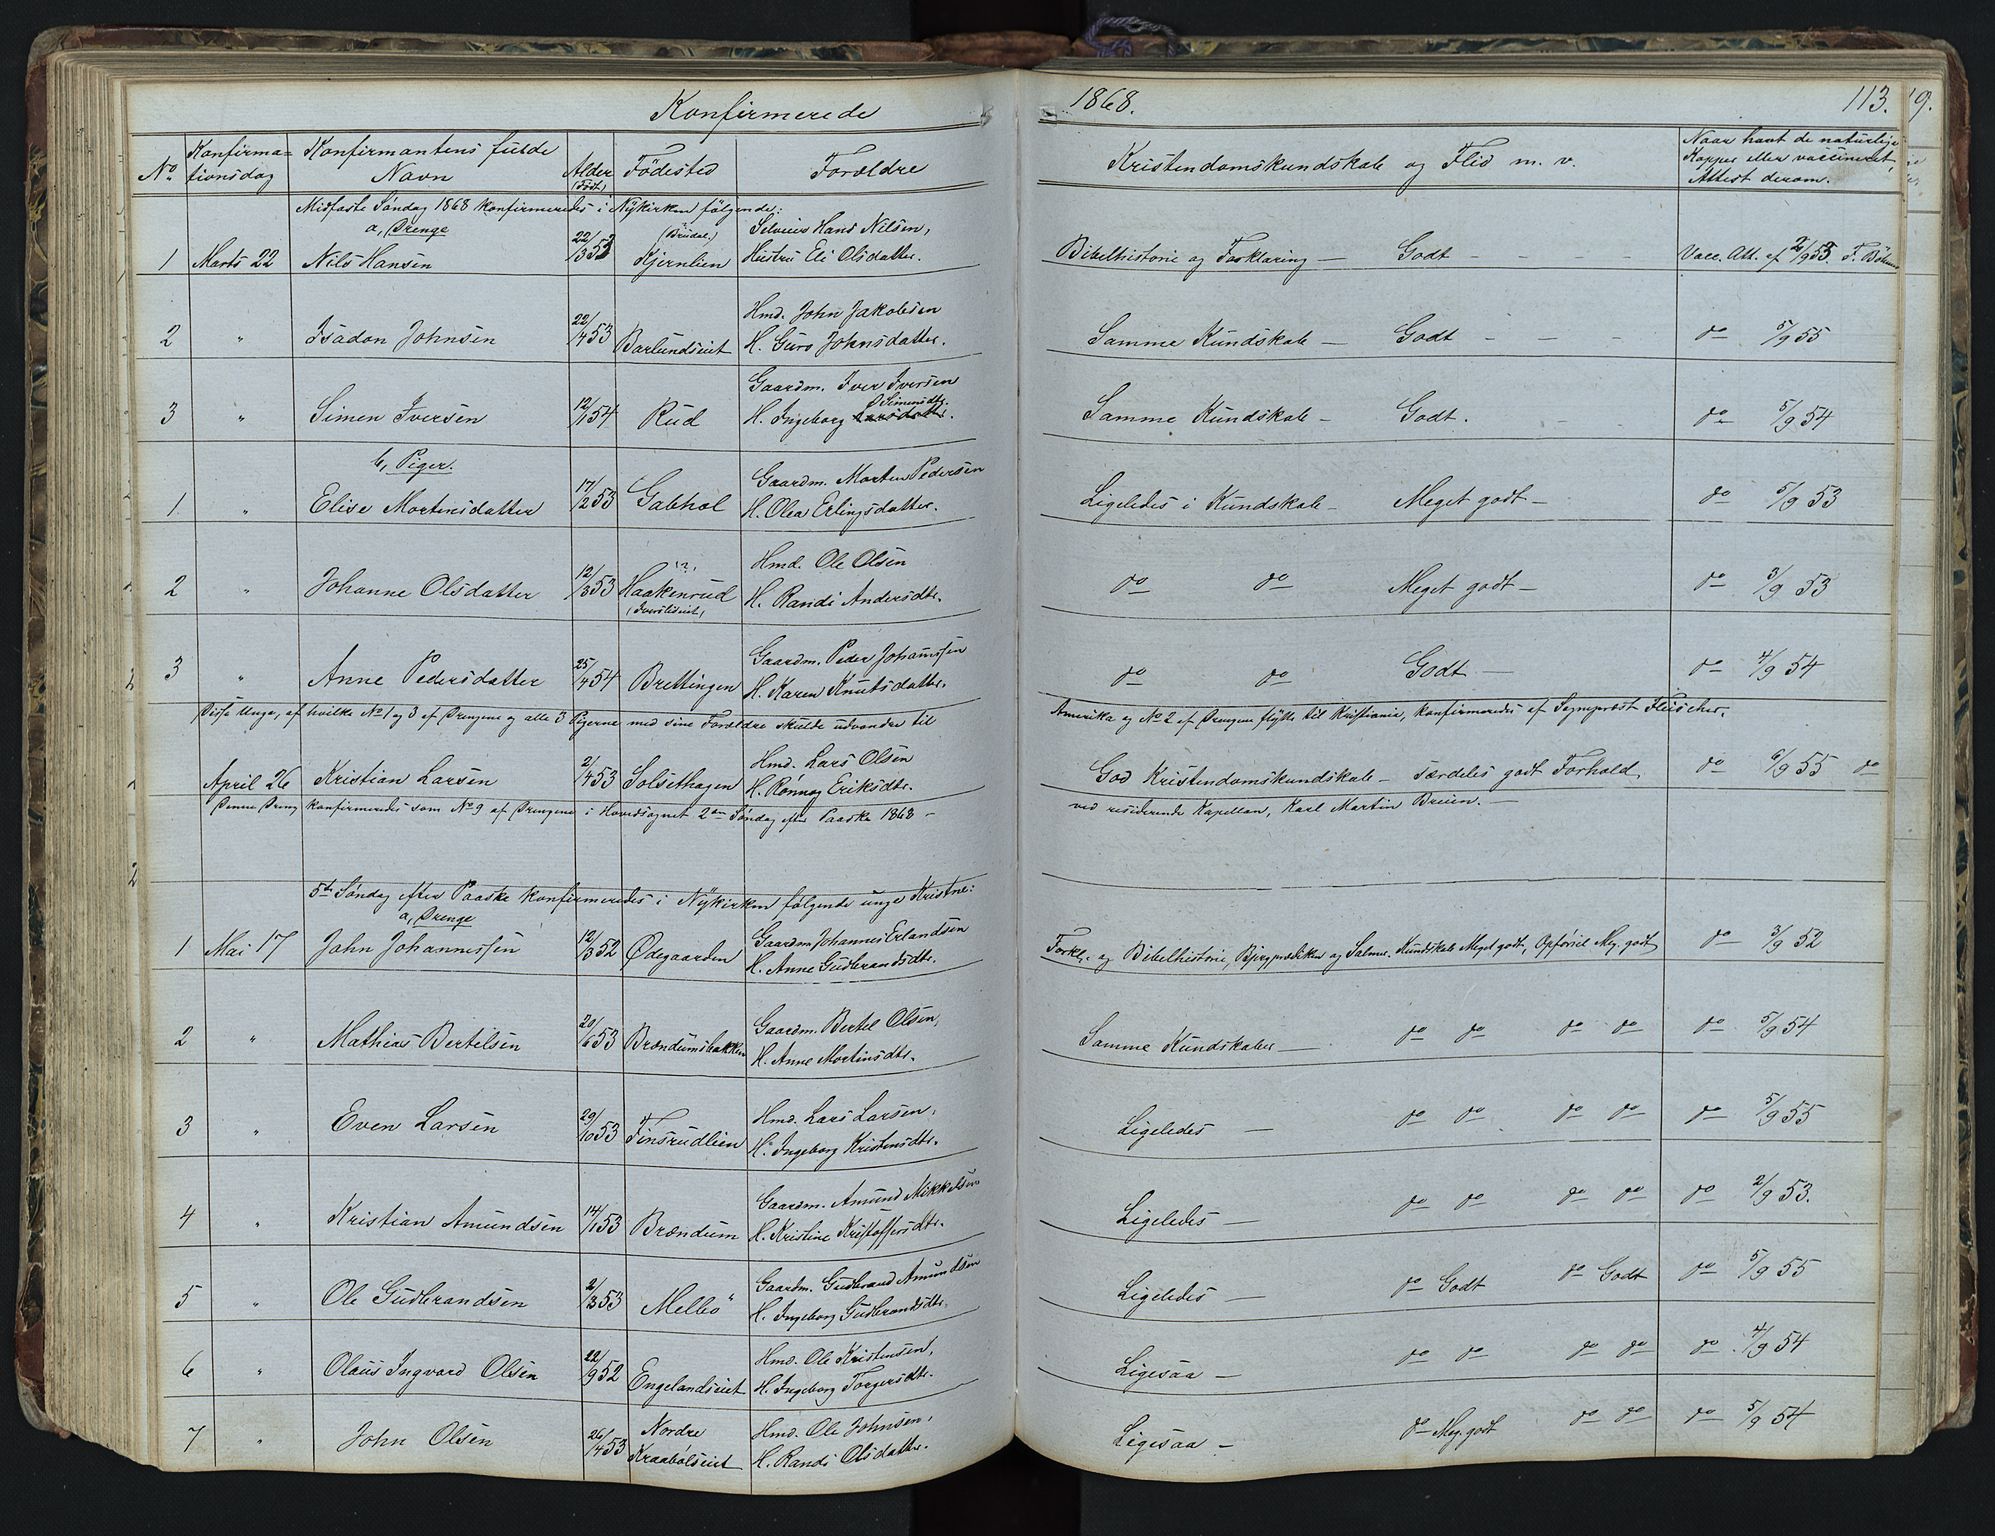 Konfirmerede 1868. 113. 9.
No. Konfirmationsdag Konfirmantens fulde Navn Alder (Født) Fødested Forældre Kristendomskundskab og Flid m. v. Naar havt de naturlige Kopper eller vaccineret, Attest derom.
Midfaste Søndag 1868 konfirmeredes i Nykirken følgende:
a, Drenge
1 Marts 22 Nils Hansen 22/3 53 (Brudal.) Kjernlien Selveier Hans Nilsen, Hustru Eli Olsdatter. Bibelhistorie og Forklaring — Godt - - - - Vacc. Att. af 2/9 53. F. Bøhmer
2 " Isadon Johnsen 22/4 53 Barlundseiet Hmd. John Jakobsen H. Guro Johnsdatter. Samme Kundskab — Godt - - - do 5/9 55
3 " Simen Iversen 12/1 54 Rud Gaardm. Iver Iversen H. Ingeborg Simensdtr. Samme Kundskab - Godt. - - do 5/9 54
b, Piger.
1 " Elise Mortensdatter 17/2 53 Gabhol Gaardm. Morten Pedersen H. Olea Erlingsdatter. Ligeledes i Kundskab - Meget godt - do 5/9 53
2 " Johanne Olsdatter 12/3 53 Haakenrud (Iversliseiet) Hmd. Ole Olsen H. Randi Andersdtr. do do Meget godt - do 3/9 53
3 " Anne Pedersdatter 25/4 54 Brettingen Gaardm. Peder Johannssen H. Karen Knutsdatter. do do Godt - do 4/9 54
Disse Unge, af hvilke No 1 og 3 af Drengene og alle 3 Pigerne med sine Forældre skulde udvandre til Amerika og No 2 af Drengene flytte til Kristiania, konfirmeredes af Sognepræst Fleischer.
April 26 Kristian Larsen 2/4 53 Solsethagen Hmd. Lars Olsen H. Rønnog Eriksdtr. God Kristendomskundskab - Særdeles godt Forhold, do 6/9 55 do
Denne Dreng konfirmeredes som No 9 af Drengene i Hovedsognet 2den Søndag efter Paaske 1868 - ved residerende Kapellan, Karl Martin Breien. -
5te Søndag efter Paaske konfirmeredes i Nykirken følgende unge Kristne:
a, Drenge
1 Mai 17 John Johannessen 12/3 52 Ødegaarden Gaardm. Johannes Erlandsen H. Anne Gudbrandsdtr. Forkl. og Bibelhistorie, Bjergprædiken og Salmer. Kundskab Meget godt, Opførsel Meg. godt do 3/9 52
2 " Mathias Bertelsen 20/6 53 Brændumsbakken Gaardm. Bertel Olsen, H. Anne Mortensdtr. Samme Kundskaber - do do do do do 5/9 54
3 " Even Larsen 29/10 53 Finsrudlien Hmd. Lars Larsen, H. Ingeborg Kristensdtr. Ligeledes - do do do do do 5/9 55
4 " Kristian Amundsen 14/1 53 Brændum Gaardm. Amund Mikkelsen H. Kristine Kristoffersdtr. Ligeledes - do do do do do 2/9 53.
5 " Ole Gudbrandsen 2/3 53 Melbö Gaardm. Gudbrand Amundsen H. Ingeborg Gudbrandsdtr. Ligeledes - do Godt do Godt do 5/9 55
6 " Olaus Ingvard Olsen 22/9 52 Engelandseiet Hmd. Ole Kristensen, H. Ingeborg Torgersdtr. Ligesaa - do do do do do 4/9 54
7 " John Olsen 26/4 53 Nordre Kraabølseiet Hmd. Ole Johnsen, H. Randi Olsdatter. Ligesaa - do Meg. godt do do do 5/9 54